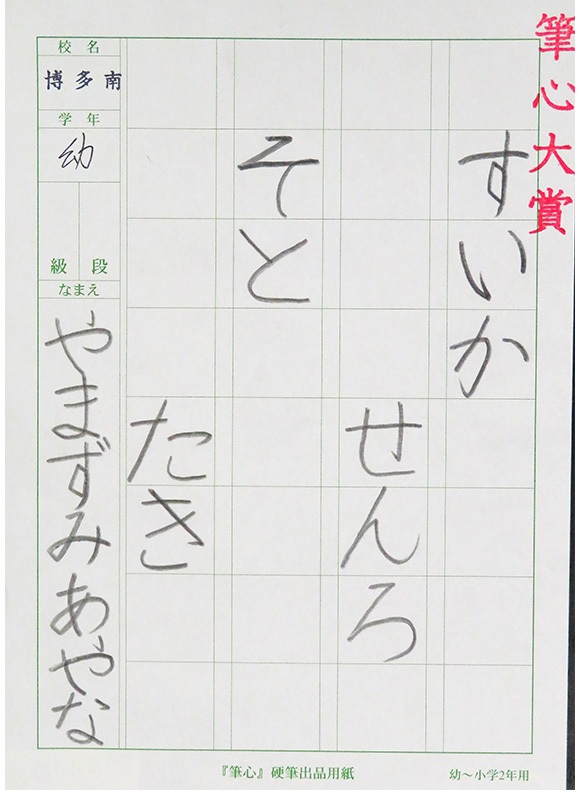 筆心大賞
すいか
せんろ
そと
たき
校名
博多南
学年
幼
段
級
なまえ
やまずみあやな
『筆心』硬筆出品用紙
幼～小学2年用